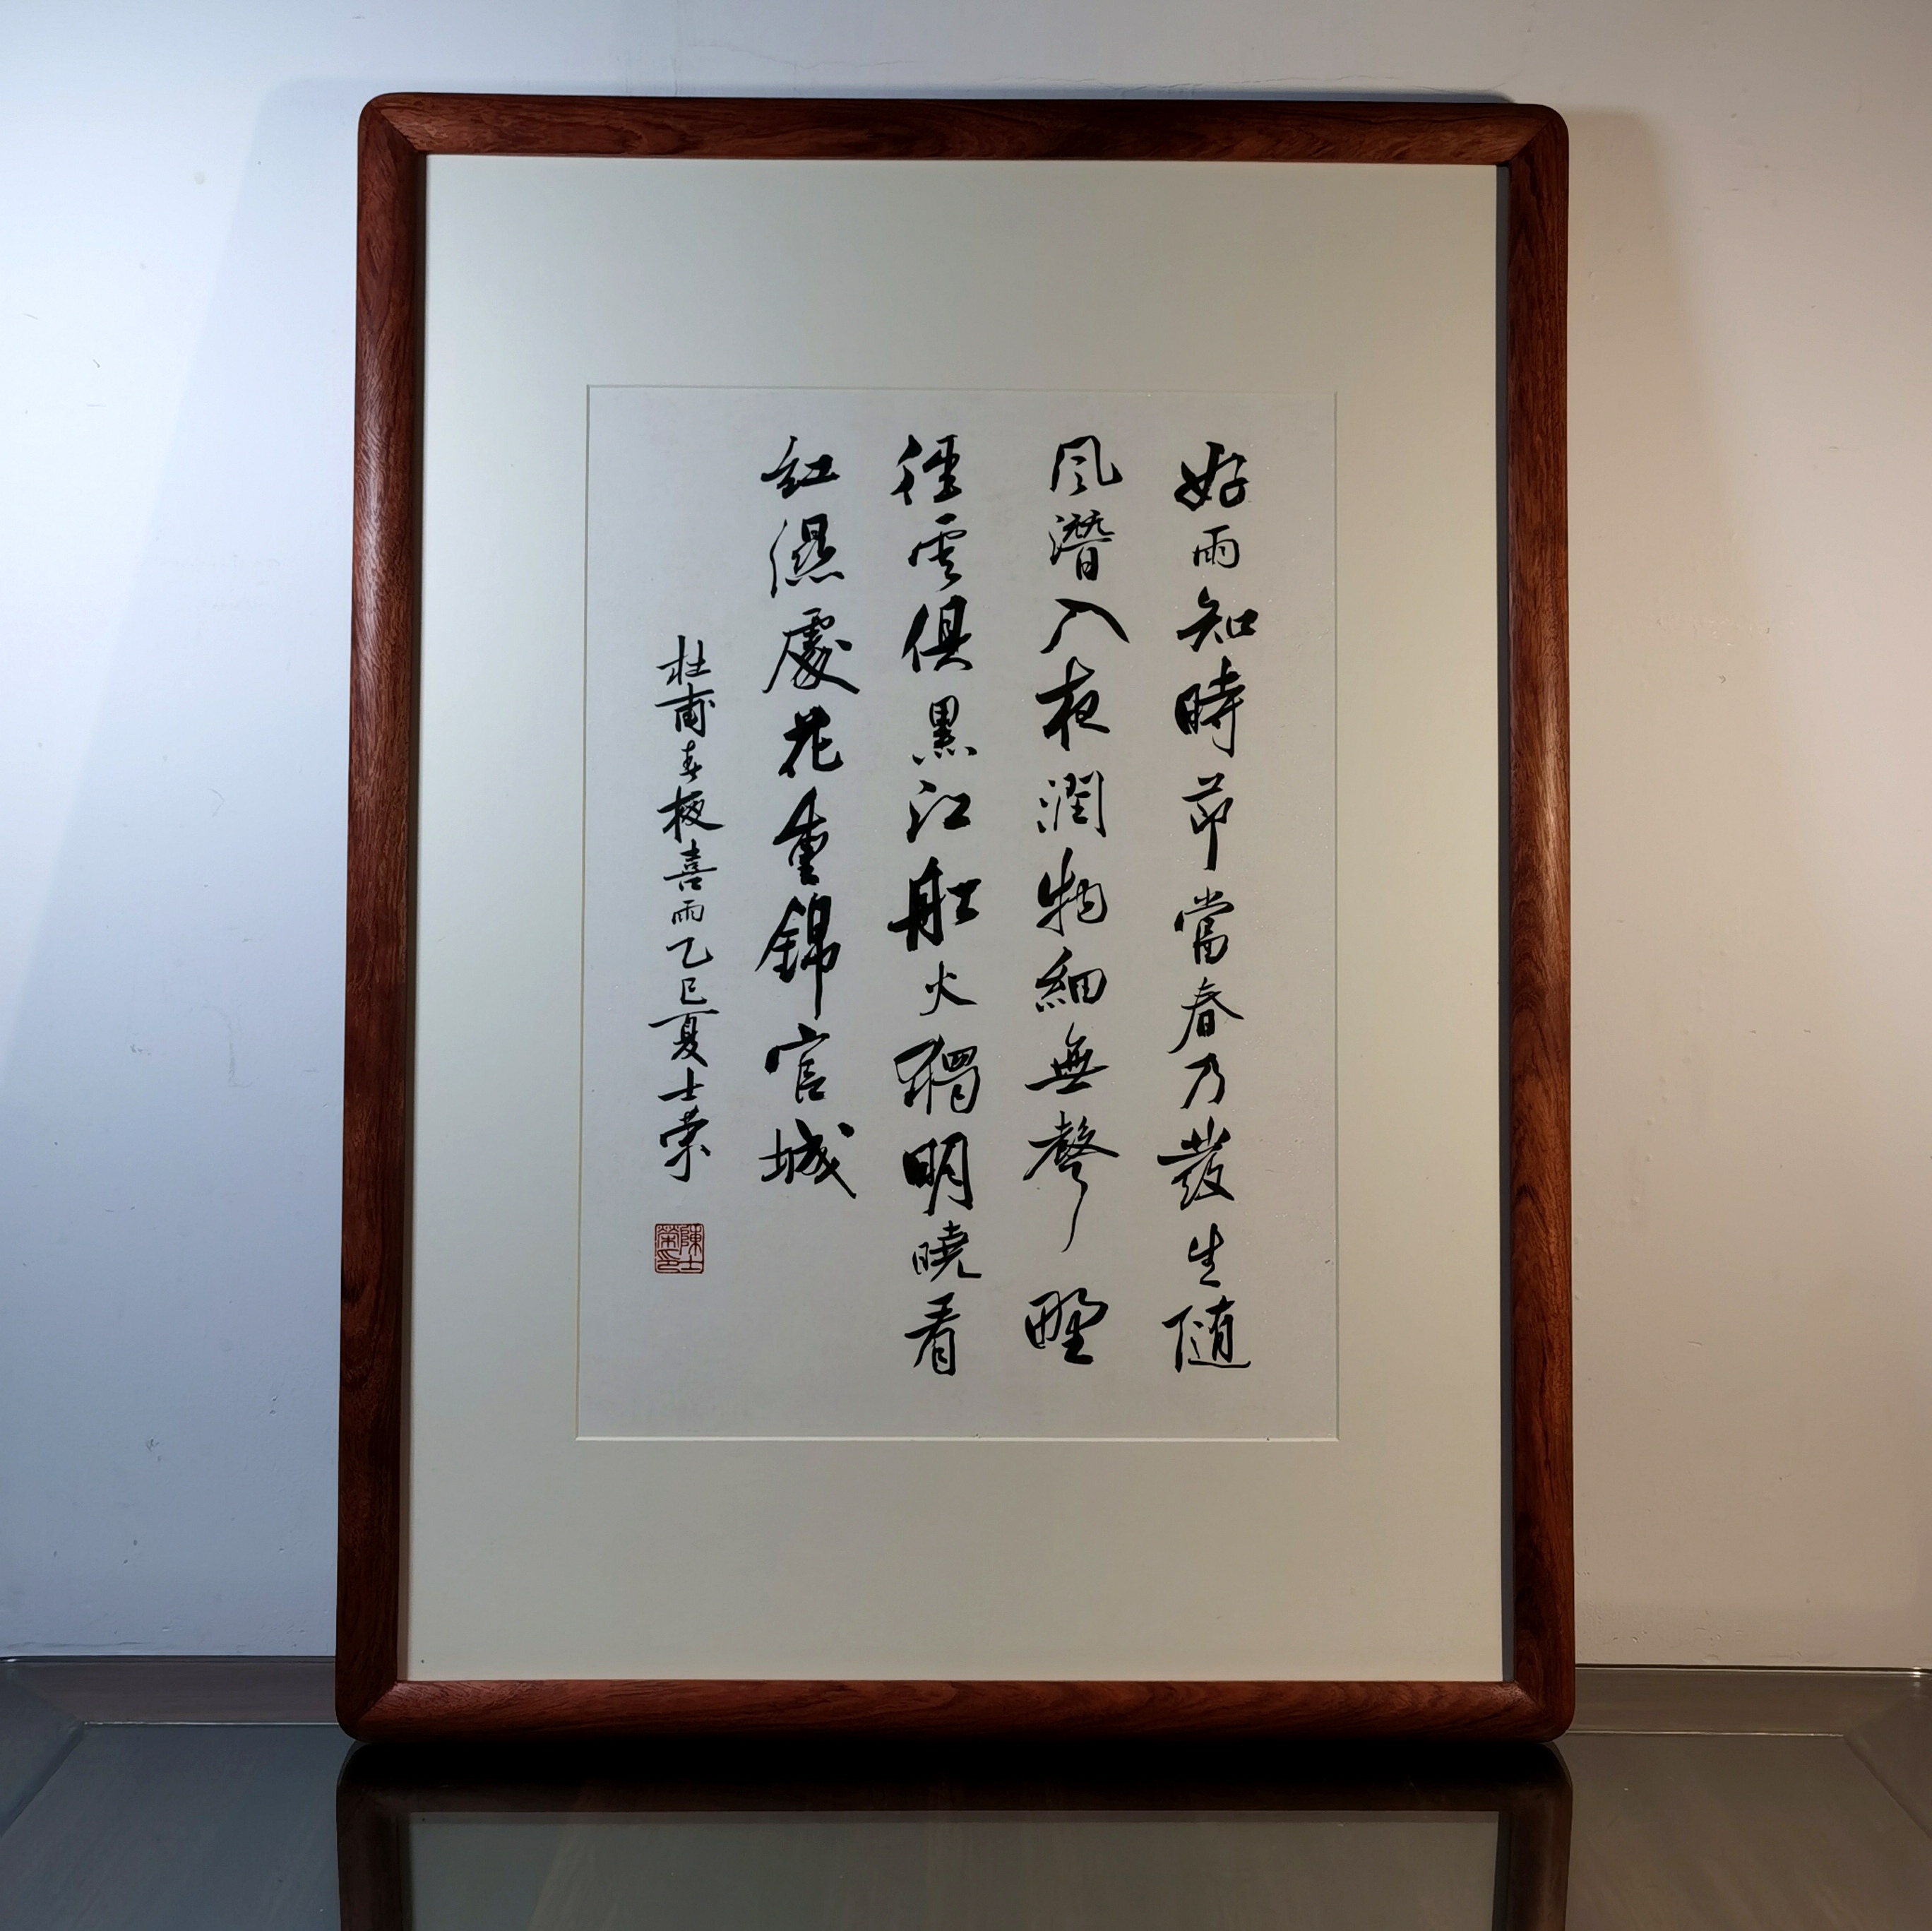 好雨知時節當春乃發生随
風潛入夜潤物細無聲野
徑雲俱黑江船火獨明曉看
紅濕處花重錦官城
杜甫春夜喜雨乙巳夏士榮
陳士榮印